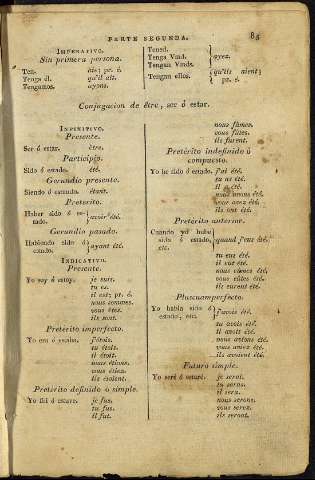 PARTE SEGUNDA. 85
IMPERATIVO.
Sin primera persona.
Ten. aie; pr. é.
Tenga él. qu'il ait.
Tengamos. ayons.
Tened.
Tenga Vmd. ayez.
Tengan Vmds.
Tengan ellos. qu'ils aient;
pr. é.
Conjugacion de être, ser ó estar.
INFINITIVO.
Presente.
Ser ó estar. être.
Participio.
Sido ó estado. été.
Gerundio presente.
Siendo ó estando. étant.
Preterito.
Haber sido ó es-
tado. avoir été.
Gerundio pasado.
Habiendo sido ó
estado. ayant été.
INDICATIVO.
Presente.
Yo soy ó estoy. je suis.
tu es.
il est; pr. é.
nous sommes.
vous êtes.
ils sont.
Pretérito imperfecto.
Yo era ó estaba. j'étois.
tu étois.
il étoit.
nous étions.
vous étiez.
ils étoient.
Pretérito definido ó simple.
Yo fuí ó estuve. je fus.
tu fus.
il fut.
nous fûmes.
vous fûtes.
ils furent.
Pretérito indefinido ó
compuesto.
Yo he sido ó estado. j'ai été.
tu as été.
il a été.
nous avons été.
vous avez été.
ils ont été.
Preterito anterior.
Cuando yo hube
sido ó estado, quand j'eus été.
etc.
tu eus été.
il eût été.
nous eûmes été.
vous eûtes été.
ils eurent été.
Pluscuamperfecto.
Yo habia sido ó
estado, etc. j'avois été.
tu avois été.
il avoit été.
nous avions été.
vous aviez été.
ils avoient été.
Futuro simple.
Yo seré ó estaré. je serai.
tu seras.
il sera.
nous serons.
vous serez.
ils seront.